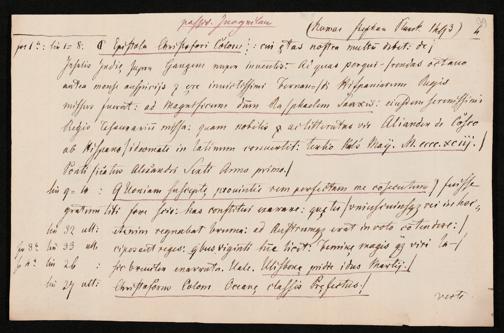 (Romae Stephan Planck 1493)
pag 1ª: lin 1=8: ¶ Epistola Christofori Colom: cui etas nostra multum debet: de
Insulis Indie supra Gangem nuper inventis. Ad quas perqui=rendas octavo
antea mense auspicijs et ere invictissimi Fernandi Hispaniarum Regis
missus fuerat: ad Magnificum dnm Raphaelem Sanxis: eiusdem serenissimi
Regis Tesaurariu missa: quam nobilis ac litteratus vir Aliander de Cosco
ab Hispano ideomate in latinum convertit: tertio kal's Maij. M.cccc.xciij.
Pontificatus Alexandri Sexti Anno primo
lin 9=10: Quoniam suscepte provintie rem perfectam me consecutum fuisse
gratum tibi fore scio: has constitui exarare: que te
lin 32 ult: etenim regnabat bruma: ad Austrum erat in voto contendere:
lin 33 ult.
lin 26 : sic breviter enarrata. Vale. Ulisbone pridie idus Martij.
lin 27 ult: Christoforus Colom Oceane classis Prefectus.
verte